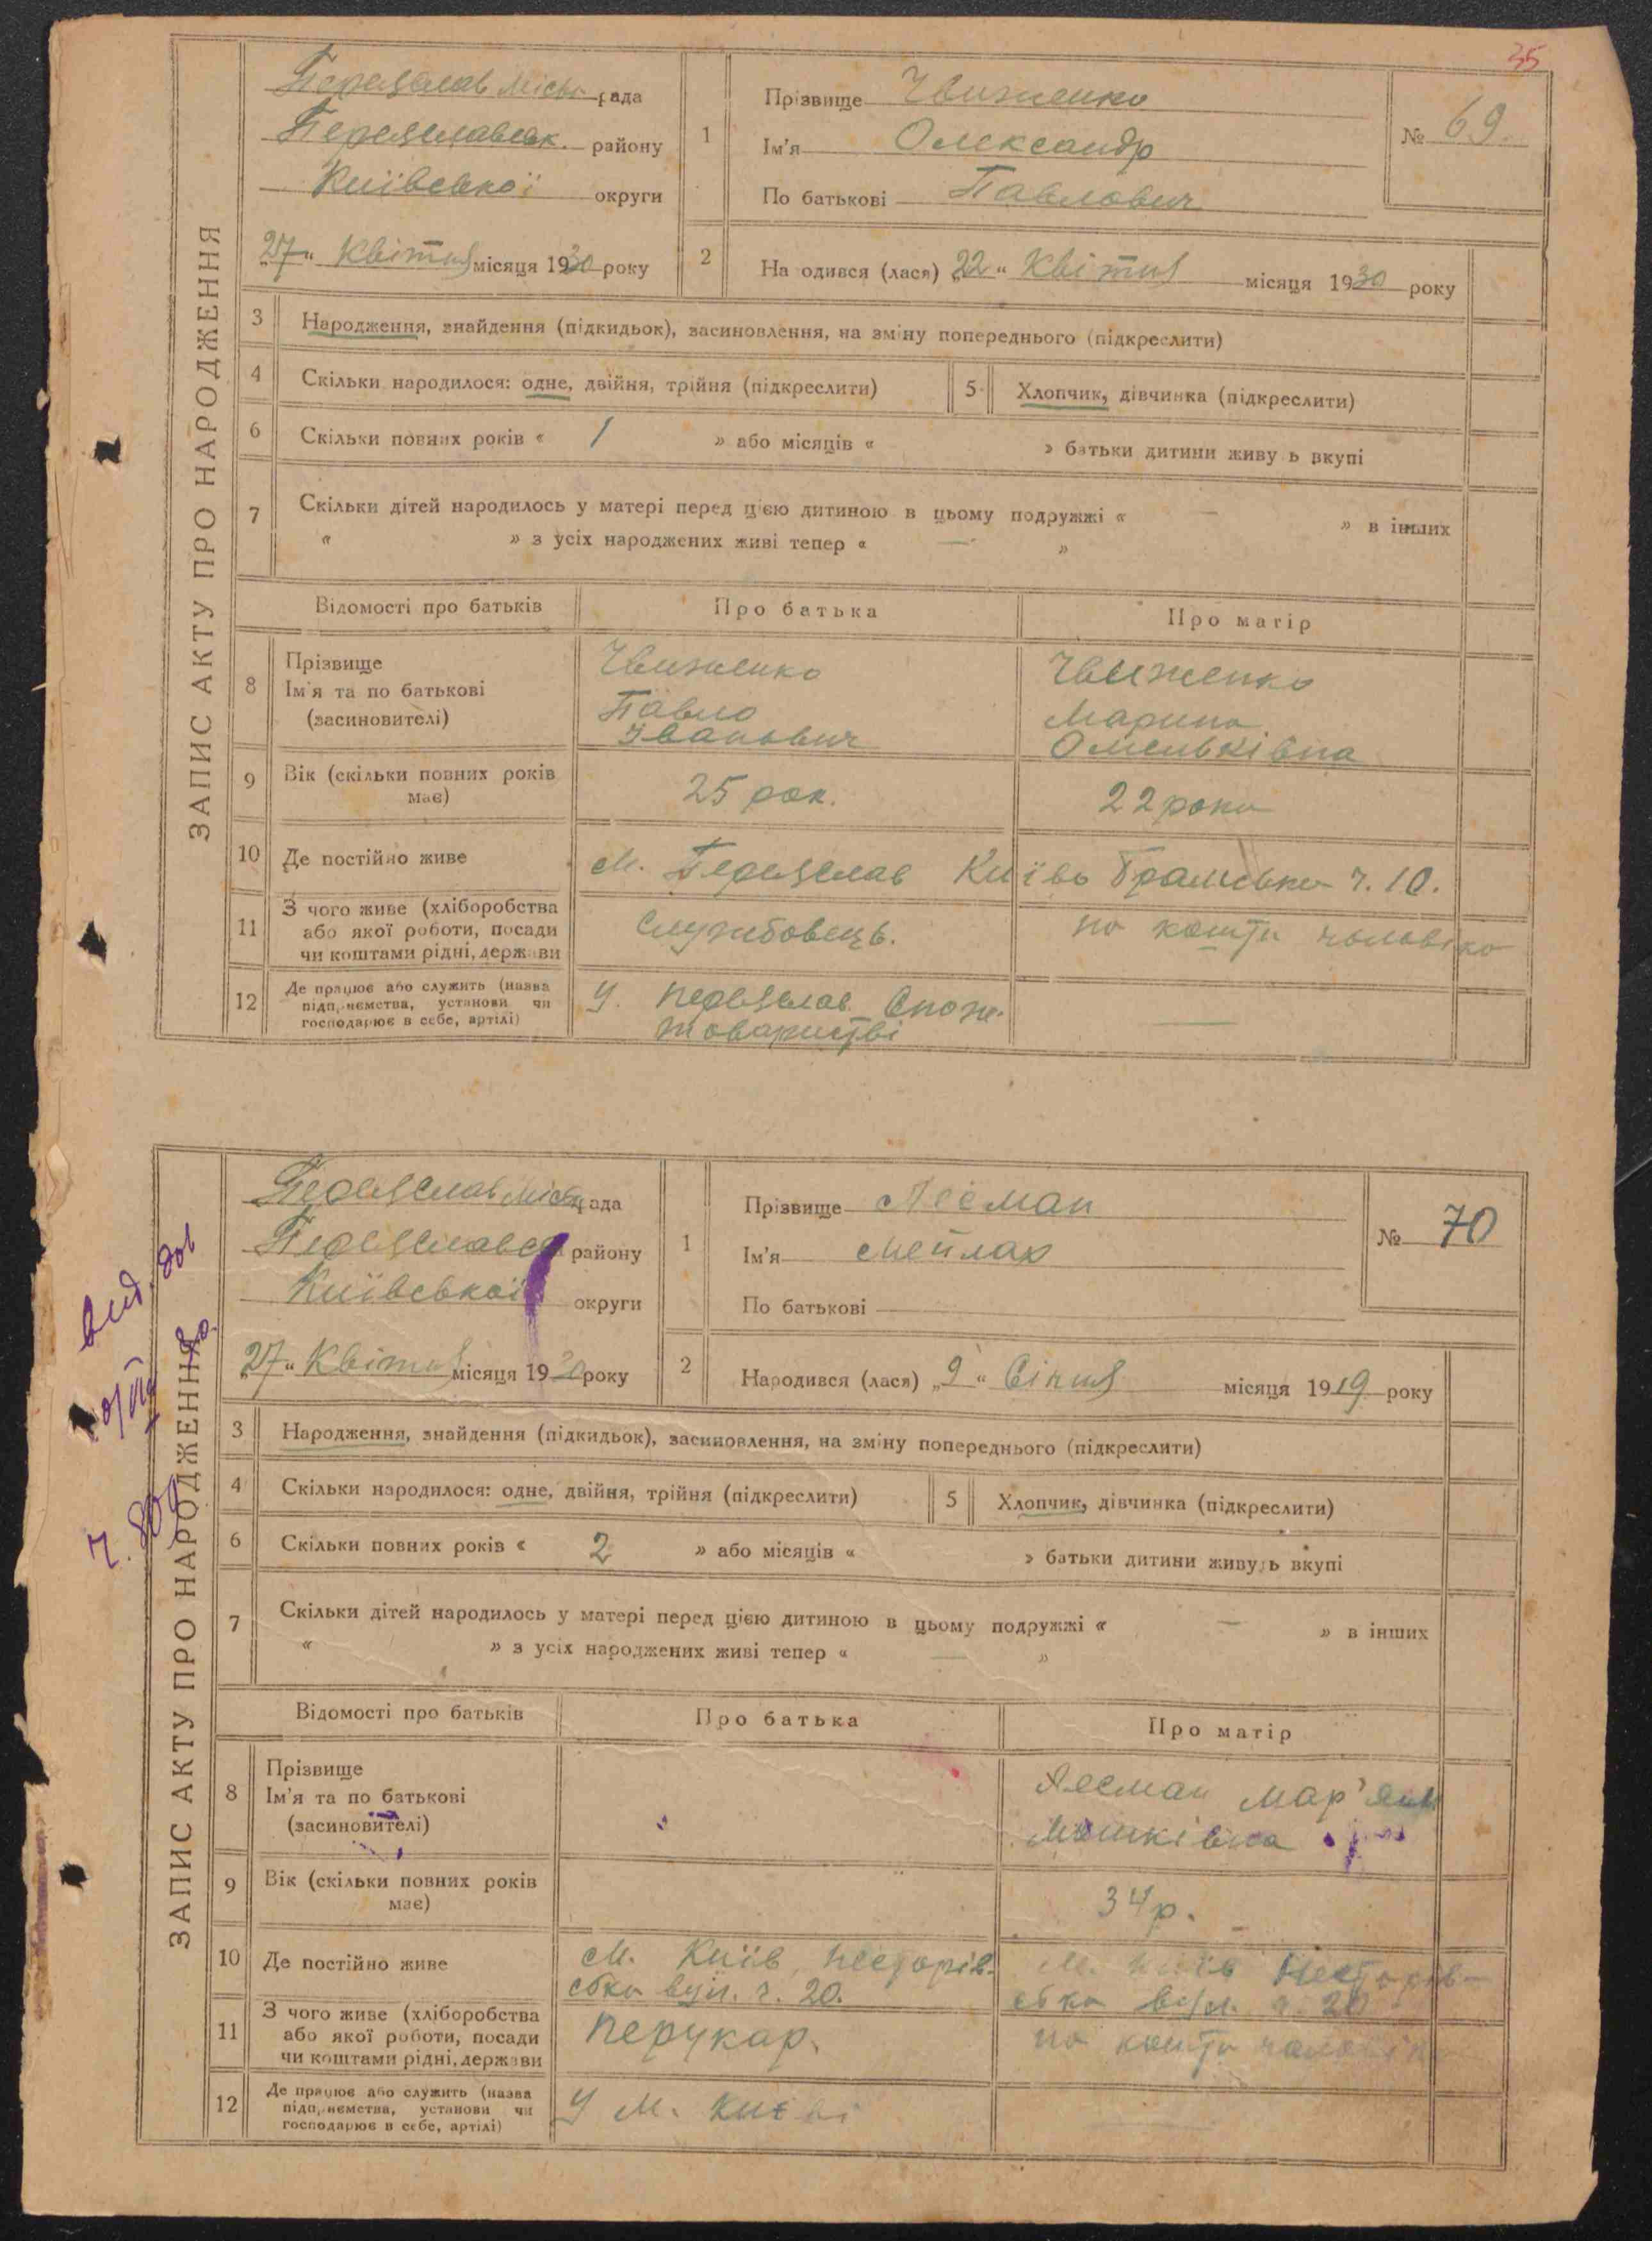 35
Переяслав міськ рада
Переяславськ. району
Київської округи
„27“ Квітня місяця 1930 року
1
Прізвище Чвиженко
Ім'я Олександр
По батькові Павлович
№ 69
2
На одився (лася) „22“ Квітня місяця 1930 року
ЗАПИС АКТУ ПРО НАРОДЖЕННЯ
3 Народження, знайдення (підкидьок), засиновлення, на зміну попереднього (підкреслити)
4 Скільки народилося: одне, двійня, трійня (підкреслити) 5 Хлопчик, дівчинка (підкреслити)
6 Скільки повних років « 1 » або місяців « » батьки дитини живу ь вкупі
7 Скільки дітей народилось у матері перед цією дитиною в цьому подружжі « — » в інших
« » з усіх народжених живі тепер « — »
Відомості про батьків Про батька Про матір
8 Прізвище
Ім'я та по батькові
(засиновителі)
Чвиженко
Павло
Іванович
Чвиженко
Марина
Омельківна
9 Вік (скільки повних років
має)
25 рок.
22 роки
10 Де постійно живе
м. Переяслав Київо Брамська ч. 10.
11 З чого живе (хліборобства
або якої роботи, посади
чи коштами рідні, держави
Службовець.
на кошти чоловіка
12 Де працює або служить (назва
підприємства, установи чи
господарює в себе, артілі)
У Переяслав. Спож.
товаристві
—
Переяслав міськ рада
Переяславськ району
Київської округи
„27“ Квітня місяця 1930 року
1
Прізвище Лесман
Ім'я Мейлах
По батькові
№ 70
2
Народився (лася) „9“ Січня місяця 1919 року
вид. дов
ч. 809
ЗАПИС АКТУ ПРО НАРОДЖЕННЯ
3 Народження, знайдення (підкидьок), засиновлення, на зміну попереднього (підкреслити)
4 Скільки народилося: одне, двійня, трійня (підкреслити) 5 Хлопчик, дівчинка (підкреслити)
6 Скільки повних років « 2 » або місяців « » батьки дитини живуть вкупі
7 Скільки дітей народилось у матері перед цією дитиною в цьому подружжі « — » в інших
« » з усіх народжених живі тепер « — »
Відомості про батьків Про батька Про матір
8 Прізвище
Ім'я та по батькові
(засиновителі)
Лесман Мар'ям
Мошківна
9 Вік (скільки повних років
має)
34 р.
10 Де постійно живе
м. Київ, Несторів-
ська вул. ч. 20.
м. Київ Несторів-
ська вул. ч. 20
11 З чого живе (хліборобства
або якої роботи, посади
чи коштами рідні, держави
Перукар.
на кошти чоловіка
12 Де працює або служить (назва
підприємства, установи чи
господарює в себе, артілі)
У м. Києві